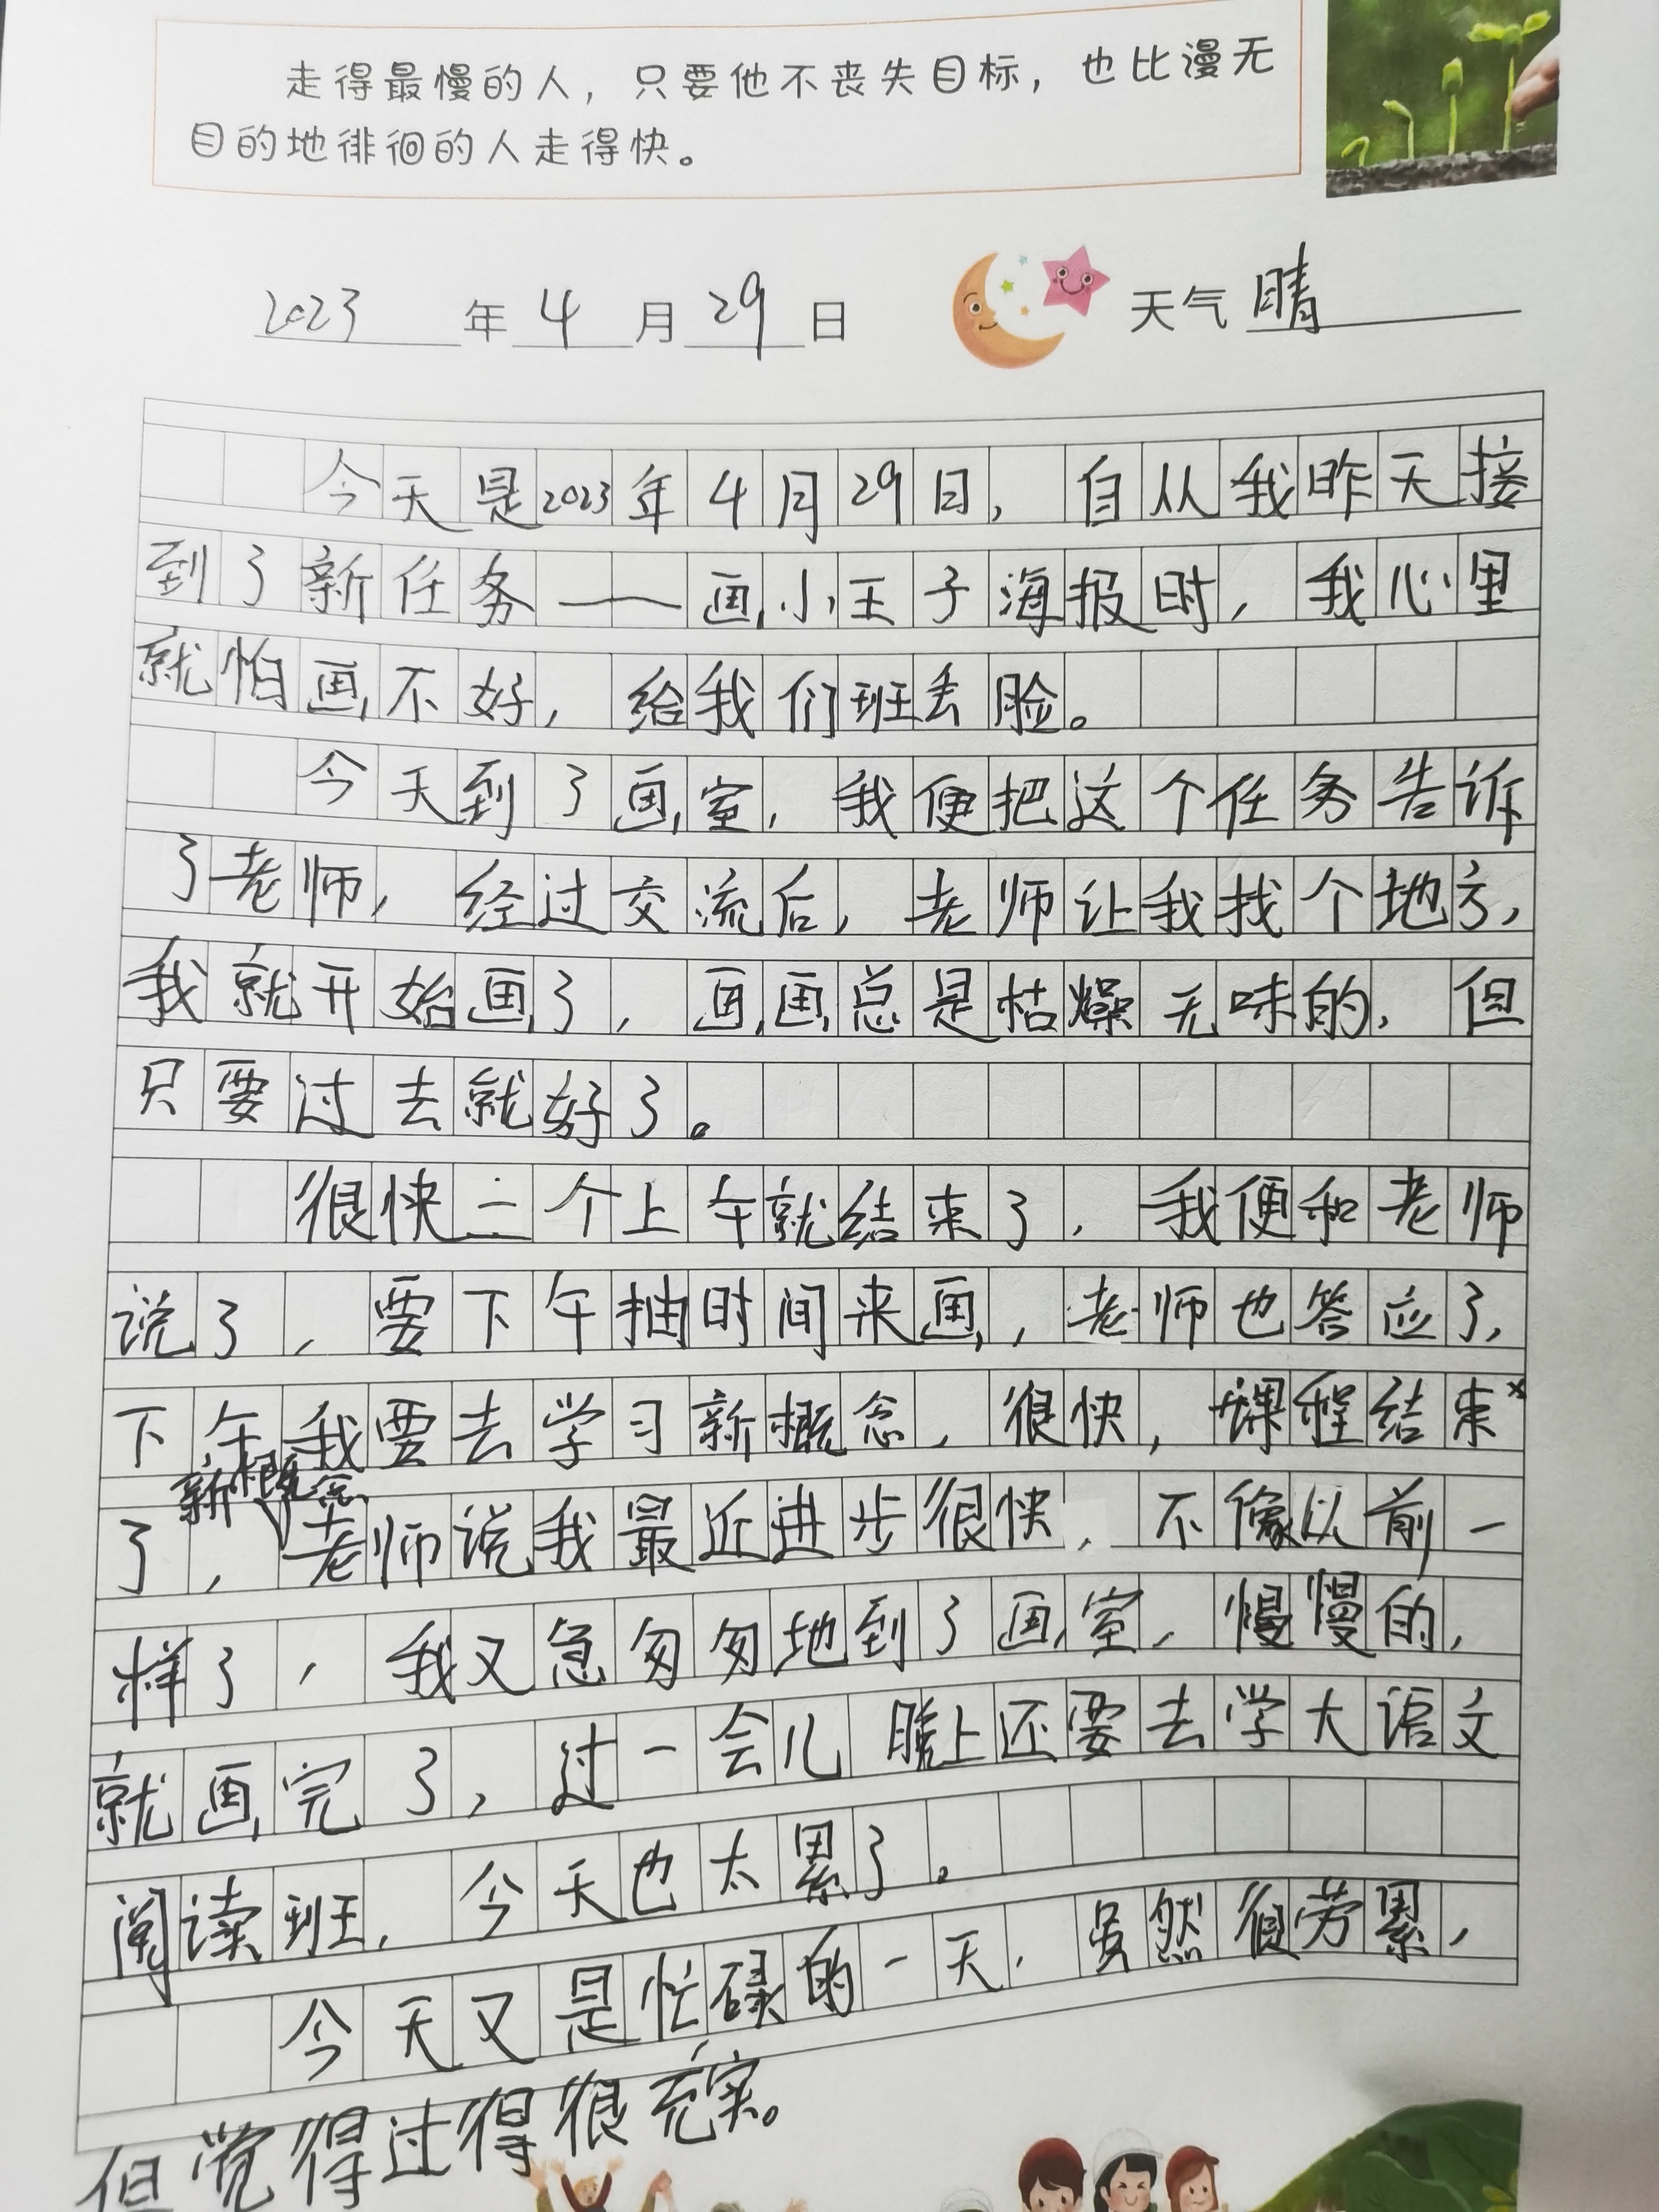 走得最慢的人，只要他不丧失目标，也比漫无
目的地徘徊的人走得快。
2023年4月29日 天气 晴
今天是2023年4月29日，自从我昨天接
到了新任务——画小王子海报时，我心里
就怕画不好，给我们班丢脸。
今天到了画室，我便把这个任务告诉
了老师，经过交流后，老师让我找个地方，
我就开始画了，画画总是枯燥无味的，但
只要过去就好了。
很快二个上午就结束了，我便和老师
说了，要下午抽时间来画，老师也答应了，
下午我要去学习新概念，很快，课程结束
新概念
了，老师说我最近进步很快，不像以前一
样了，我又急匆匆地到了画室，慢慢的，
就画完了，过一会儿晚上还要去学大语文
阅读班，今天也太累了。
今天又是忙碌的一天，虽然很劳累，
但觉得过得很充实。